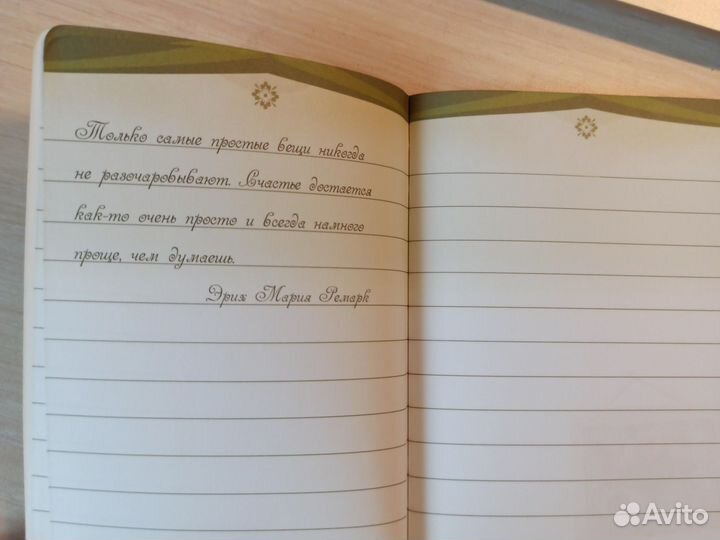 Только самые простые вещи никогда
не разочаровывают. Счастье достается
как-то очень просто и всегда намного
проще, чем думаешь.
Эрих Мария Ремарк
Avito